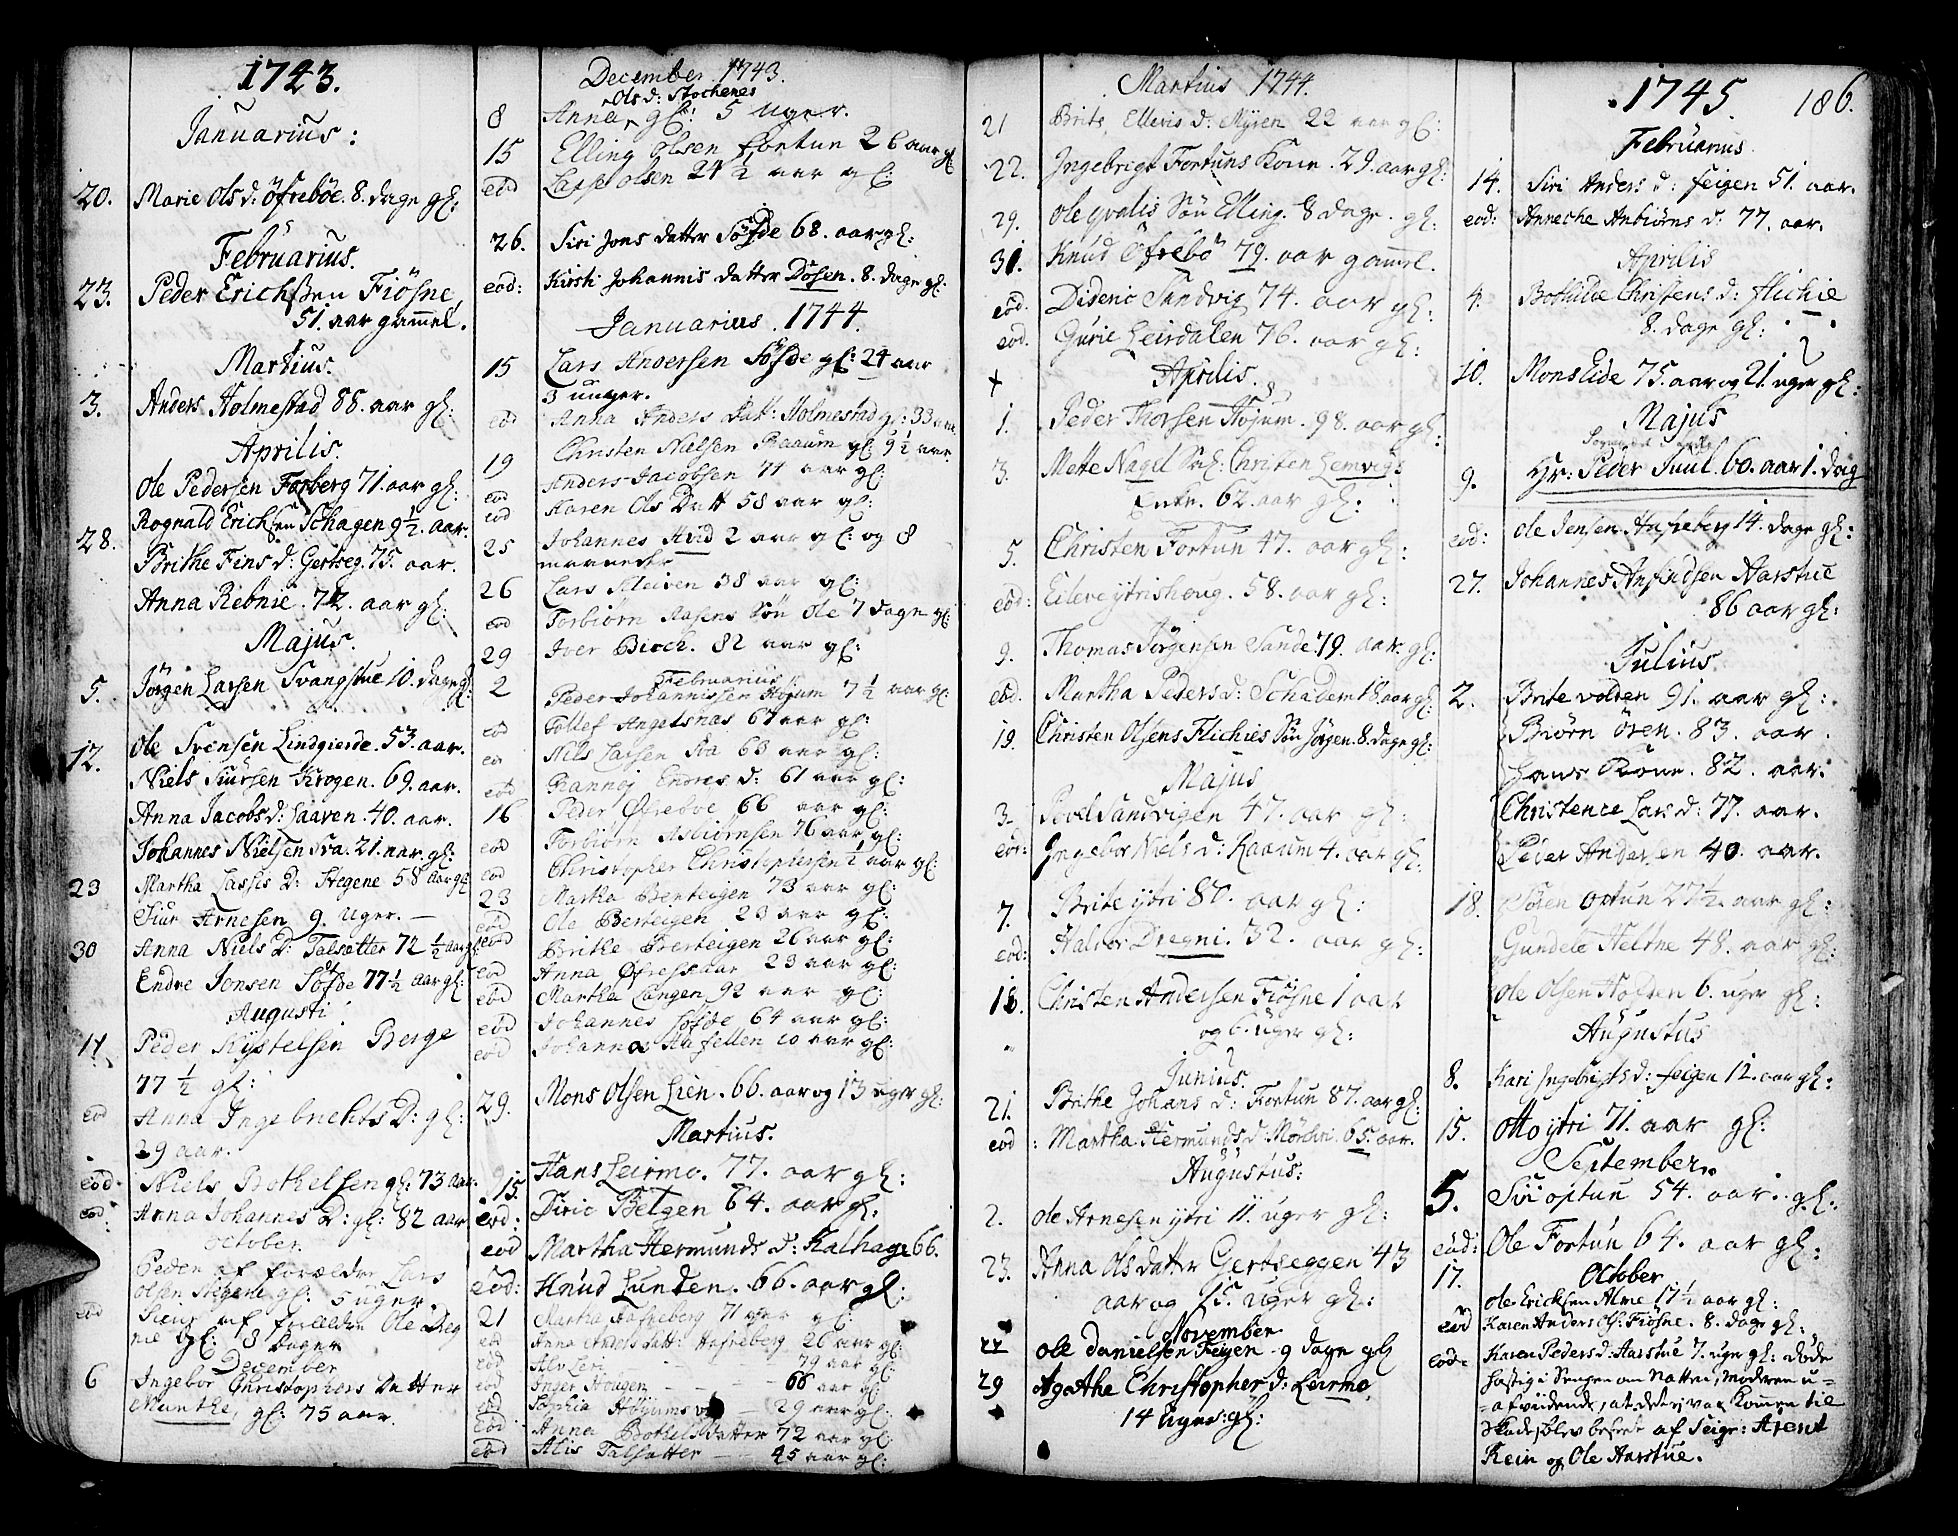 1743.
Januarius:
20. Marie Ols d: Öfreböe. 8. dage gl:
Februarius.
23. Peder Erichssen Fiösne,
51. aar gammel.
Martius.
3. Anders Holmestad 88. aar gl:
Aprilis.
Ole Pedersen Forberg 71. aar gl:
28. Rognald Erichsen Schagen 9 1/2. aar.
Brithe Fins d: Gertseg. 75. aar.
Anna Rebnie. 72. aar gl:
Majus.
5. Jörgen Larsen Svangstue 10. dage gl:
12. Ole Svensen Lindgierde. 53. aar.
Niels Siursen Krogen. 69. aar.
Anna Jacobs d: Haaven. 40. aar.
Johannes Nielsen Fra. 21. aar. gl:
23 Martha Lassis D: Stegene 58 aar gl
Siur Arnesen 9. Uger. —
30 Anna Niels D: Talsætter 72 1/2 aar gl:
Endre Jonsen Söfde 77 1/2 aar gl:
Augusti
11. Peder Kystelsen Berge
77 1/2 gl:
eod Anna Ingebrichts D: gl:
29 aar.
eod. Niels Bothelsen gl: 73 aar.
eod Anna Johannes D: gl: 82 aar
October.
Peder af forældre Lars
Olsen Stegene gl: 5 uger.
eod af forældre Ole Dreg
nie gl: 8 dager
December
6 Ingebor Christophers Datter
Munthe, gl: 75 aar.
December 1743.
Ols d: Stochenes
8 Anna gl: 5 Uger.
15 Elling Olsen Fortun 26 aar gl
eod Lasse Olsen 24 1/2 aar gl:
26. Siri Jons datter Söfde 68. aar gl:
eod: Kirsti Johannis datter Dösen. 8. dage gl.
Januarius. 1744.
15 Lars Andersen Söfde gl: 24 aar
3 uuger.
eod Anna Anders Datt: Holmestad gl: 33 aar.
19 Christen Nielsen Raaum gl: 9 1/2 aar.
eod Anders Jacobsen 71 aar gl:
eod Karen Ols Datt 58 aar gl:
25 Johannes Hvid 2 aar gl: og 8
maaneder
26 Lars Kleiven 38 aar gl:
eod Torbiørn Aasens Søn Ole 7 dage gl:
29 Iver Birch. 82 aar gl:
Februarius
2 Peder Johannissen Høium 7 1/2 aar gl:
eod Tollef Angelsnæs 67 aar gl:
eo Nils Lassen Fra 63 aar gl:
eod Rannoj Endres d: 61 aar gl:
16 Peder Øfreboe 66 aar gl:
eod Torbiørn Asbiørnsen 76 aar gl:
eod Christopher Christophersen 1/2 aar gl:
23 Martha Berteigen 73 aar gl:
eod Ole Berteigen 23 aar gl:
eod Brithe Berteigen 26 aar gl:
eod Anna Øfrefaar 23 aar gl:
eod Martha Langen 92 aar gl:
eod Johannes Söfde 64 aar gl:
eod Johannes Hafellen 10 aar gl:
29. Mons Olsen Lien. 66. aar og 13 uger gl:
Martius.
15. Hans Leirmo. 77. aar gl:
eod: Diric Bolgen 64. aar gl.
eod Martha Hermunds d: Kalhage 66.
eod: Knud Lunden. 66. aar gl:
21 Martha Hafreberg 71 aar gl:
eod Anna Anders datt: Hafreberg 26 aar gl:
eod Alv Leri 79 aar gl:
eod Inger Hougen - - - 66 aar gl:
eod Sophia Höyums - 29 aar gl:
eod Anna Bothels datter 72 aar gl:
eod Alis Talsatter - - 45 aar gl:
Martius 1744.
21 Brite Ellevis d: Myren 22 aar gl:
22. Ingebrigt Fortuns Kone. 29. aar gl:
29. Ole qvalis Søn Elling. 8 dage. gl:
31. Knud Öfrebö 79. aar gammel.
eod. Dideric Sandvig 74. aar gl:
eod. Gurie Leirdalen 76. aar gl:
+ Aprilis.
1. Peder Thorsen Höjum. 98. aar gl:
3. Mette Nagel Sal: Christen Lemvigs
Enke. 62. aar gl:
5. Christen Fortun 47. aar gl:
eod: Eileve ytrisheng. 58. aar gl:
9. Thomas Jörgensen Sande. 79. aar. gl:
eod. Martha Peders d: Schadem 18 aar gl:
19. Christen Olsens Flichies Søn Jörgen. 8. dage gl:
Majus
3. Povel Sandvigen 47. aar gl:
eod: Ingebor Niels d: Raaum 4. aar gl:
7. Brite ytri 80. aar gl:
eod: Halvor Dregni. 32. aar gl:
18. Christen Andersen Fiösne 1 aar
og 6. uger gl:
Junius.
21. Brithe Johans d: Fortun 87. aar gl:
eod : Martha Hermunds d: Mörchri. 65. aar.
Augustus:
2. Ole Arnesen ytri 11. uger gl:
23. Anna Ols datter Gertseggen 43
aar og 15. uger gl:
November
22 Ole Danielsen Feigen 9 dage gl
29 Agathe Christopher d: Leirmo
14 Uger gl:
1745. 186.
Februarius.
14. Siri Anders d: Feigen 51. aar.
eod: Anneche Anbiörns d: 77. aar.
Aprilis
4. Bothilde Christens d: Flichie
8. dage gl:
10. Mons Eide 75. aar og 21. uger gl:
Majus
9. Hr: Peder Juul. 60. aar 1. dag
eod: Ole Jensen Hafreberg 14. dage gl:
27. Johannes Anfindsen Aarstue
86 aar gl:
Julius.
2. Brite volden 91. aar gl:
Biörn Ören. 83. aar.
Hans Röne. 82. aar.
Christence Lars d: 77. aar.
Peder Andersen 40. aar.
18. Sören Optun 27 1/2. aar gl:
Gundele Heltne 48. aar gl:
Ole Olsen Hofsen 6. uger gl:
Augustus
8. Kari Ingebrigts d: Feigen 12. aar gl:
15. Otto ytri 71. aar gl:
September.
5. Siri Optun 54. aar. gl.
eod: Ole Fortun 64. aar gl:
17. October
Ole Ericksen Alme 17 1/2 aar gl:
eod Karen Anders d: Fiösne. 8. dage gl:
eod: Karen Peders d: Aarstue 7. uger gl: døde
hastig i Sengen om Natten, Moderen u=
=afvidende, at det ej var kommen til
skade, blev beseet af Leigr: Arent
Kein og Ole Aarstue.